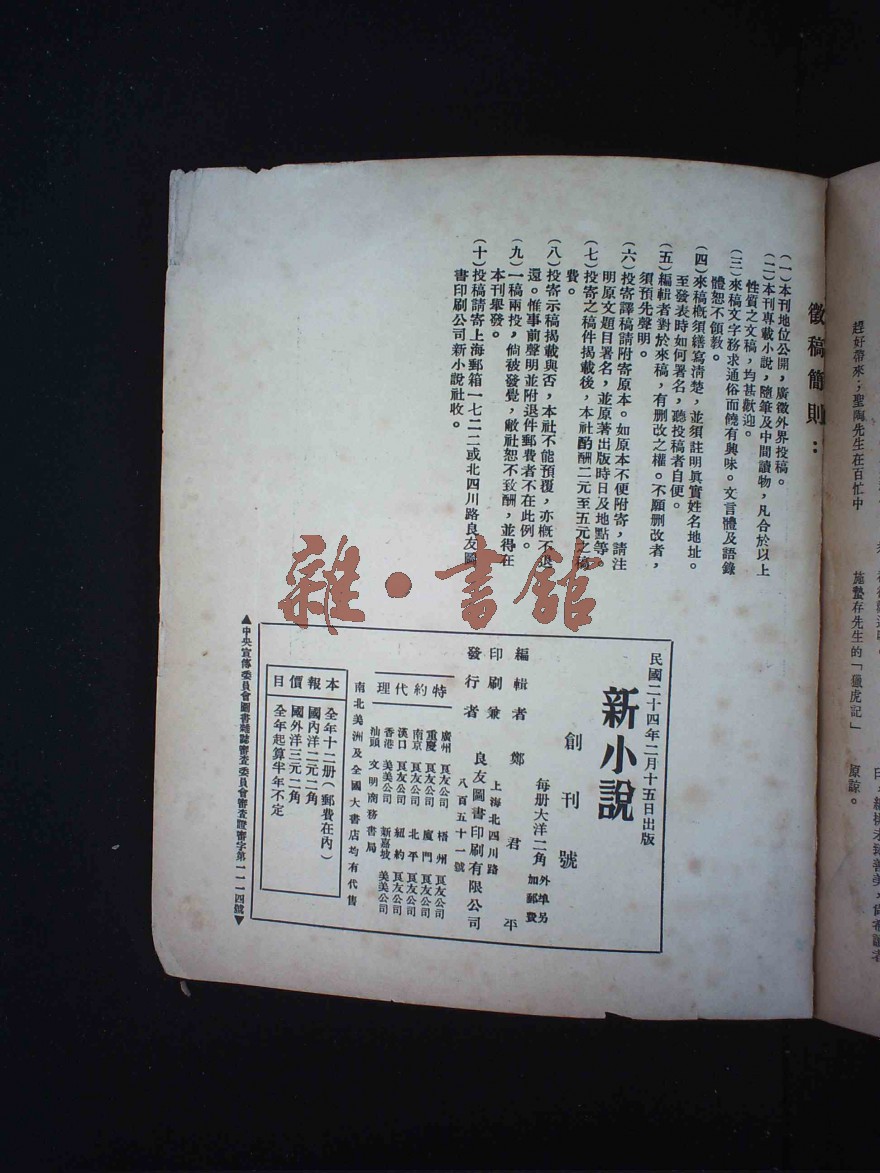 徵稿簡則：
(一)本刊地位公開，廣徵外界投稿。
(二)本刊專載小說，隨筆及中間讀物，凡合於以上
性質之文稿，均甚歡迎。
(三)來稿文字務求通俗而饒有興味。文言體及語錄
體恕不領教。
(四)來稿概須繕寫清楚，並須註明眞實姓名地址。
至發表時如何署名，聽投稿者自便。
(五)編輯者對於來稿，有刪改之權。不願刪改者，
須預先聲明。
(六)投寄譯稿請附寄原本。如原本不便附寄，請注
明原文題目署名，並原著出版時日及地點等。
(七)投寄之稿件揭載後，本社酌酬二元至五元之稿
費。
(八)投寄示稿揭載與否，本社不能預覆，亦概不退
還。惟事前聲明並附退件郵費者不在此例。
(九)一稿兩投，倘被發覺，敝社恕不致酬，並得在
本刊舉發。
(十)投稿請寄上海郵箱一七二二或北四川路良友圖
書印刷公司新小說社收。
雜·書館
民國二十四年二月十五日出版
新小說
創刊號
每册大洋二角 外埠另加郵費
編輯者 鄭君平
印刷兼發行者 良友圖書印刷有限公司
上海北四川路八百五十一號
特約代理
廣州 良友公司 梧州 良友公司
重慶 良友公司 廈門 良友公司
南京 良友公司 北平 良友公司
漢口 良友公司 紐約 良友公司
香港 美美公司 新嘉坡 美美公司
汕頭 文明商務書局
南北美洲及全國大書店均有代售
本報價目
全年十二册(郵費在內)
國內洋二元二角
國外洋三元二角
全年起算半年不定
▲中央宣傳委員會圖書雜誌審查委員會審查證審字第一一一四號▼
趕好帶來；聖陶先生在百忙中
施蟄存先生的「獵虎記」
原諒。